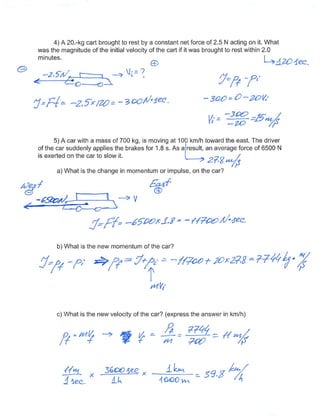 4) A 20.-kg cart brought to rest by a constant net force of 2.5 N acting on it. What
was the magnitude of the initial velocity of the cart if it was brought to rest within 2.0
minutes.
⊕
↳120 sec.
⊖
-2.5N
→ Vi = ?
J = Pf - Pi
J = Ft = -2.5×120 = -300N·sec.
-300 = 0 - 20Vi
Vi = -300/-20 = 15 m/s
5) A car with a mass of 700 kg, is moving at 100 km/h toward the east. The driver
of the car suddenly applies the brakes for 1.8 s. As a result, an average force of 6500 N
is exerted on the car to slow it.
↳ 27.8 m/s
a) What is the change in momentum or impulse, on the car?
West
⊖
East
⊕
-6500N
→ V
J = Ft = -6500×1.8 = -11700 N·sec
b) What is the new momentum of the car?
J = Pf - Pi ⇒ Pf = J + Pi = -11700 + 700×27.8 = 7744 kg·m/s
↑
mVi
c) What is the new velocity of the car? (express the answer in km/h)
Pf = mVf → Vf = Pf/m = 7744/700 = 11 m/s
11m/1sec × 3600sec/1h × 1km/1000m = 39.8 km/h